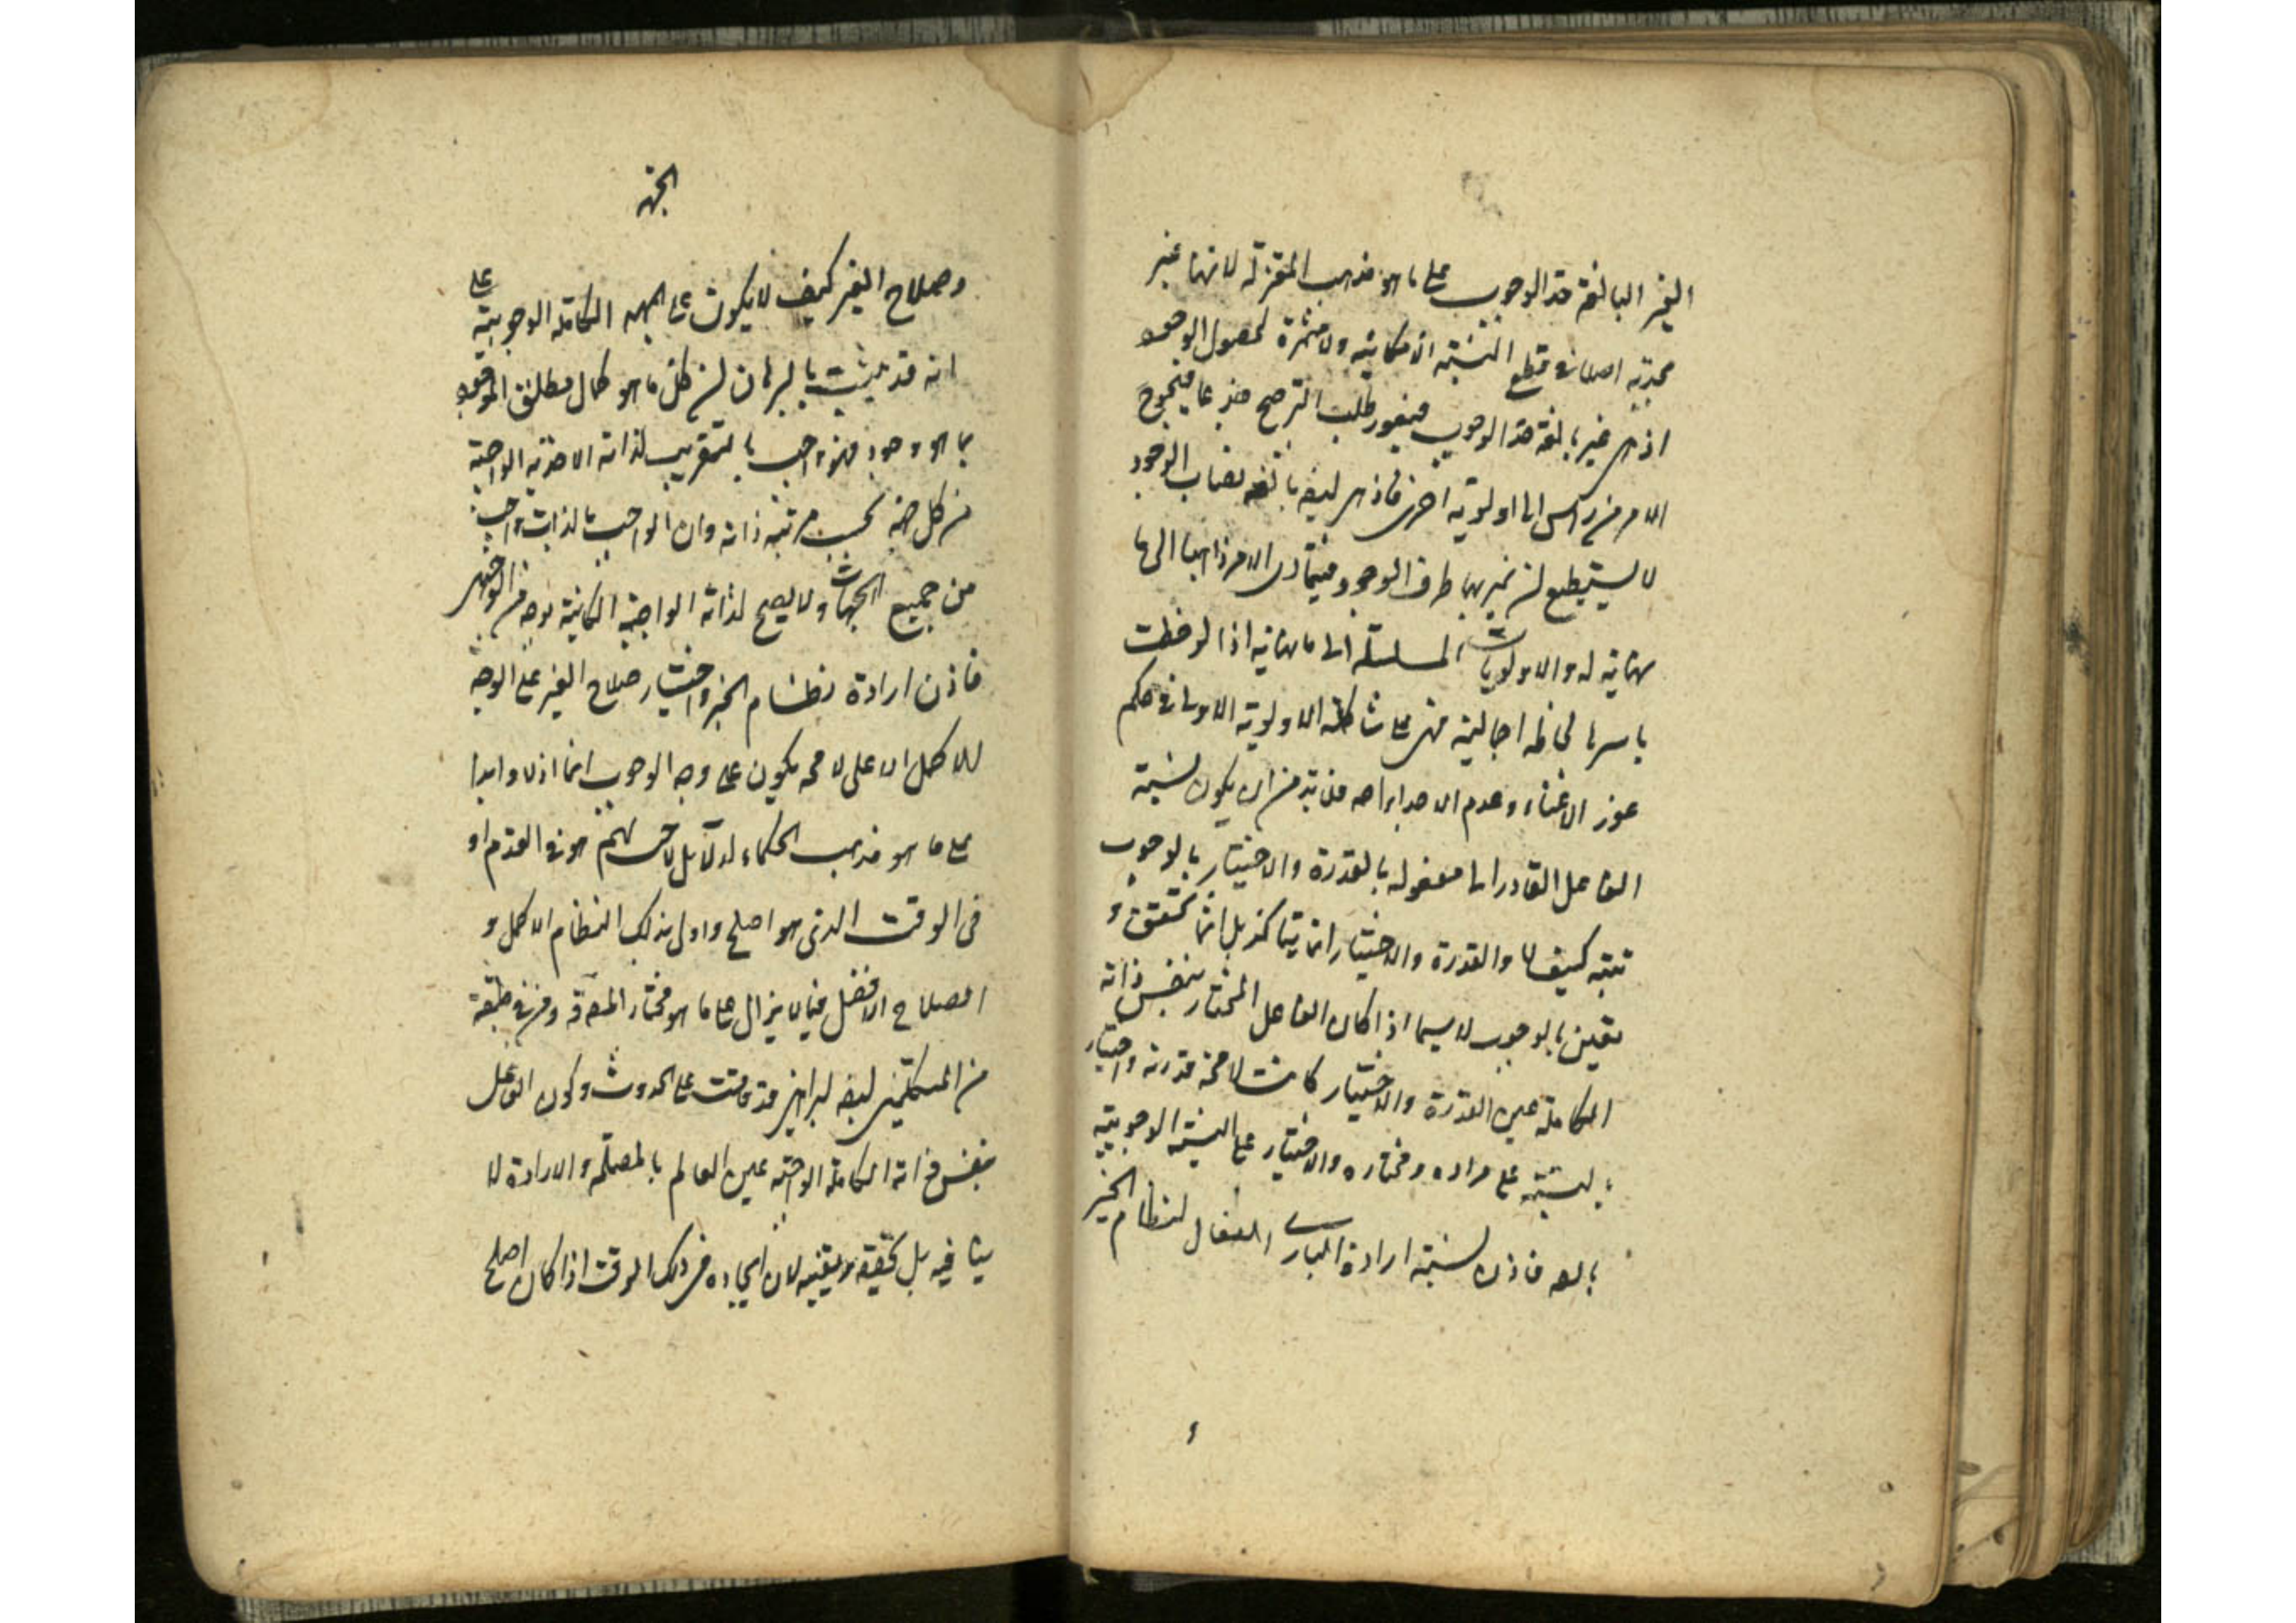 الغير البالغة حد الوجوب على ما هو مذهب المعتزلة لانها غير
مجدية اصلا فى قطع النسبة الامكانية ولا مثمرة لحصول الوجود
اذ هى غير بالغة حد الوجوب فيعود طلب الترجح جذعا فيحوج
الامر من راس الى اولوية اخرى فاذ هى ايضا بالغه نصاب الوجود
لا يستطيع ان يميز بها طرف الوجود فيتمادى الامر ذاهبا الى ما
نهاية له والاولويات المتسلسلة الى ما نهاية اذا لوحظت
باسرها لحاظة اجمالية فهى على شاكلة الاولوية الاولى فى حكم
عوز الاغناء وعدم الاجداء اصه فلا بد من ان يكون نسبة
الفاعل القادر الى مفعوله بالقدرة والاختيار بالوجوب
تبته كيف لا والقدرة والاختيار انما يتاكد بل انما تتحقق و
تعين بالوجوب لا سيما اذا كان الفاعل المختار بنفس ذاته
الكاملة عين القدرة والاختيار كانت لا محة قدرته واختيار
بالنسبة على مراده ومختاره والاختيار على النسبة الوجوبية
بالعه فاذن نسبة ارادة البارى الفعال لنظام الخير
و
الجهة
وصلاح الغير كيف لا يكون على الجهه الكاملة الوجوبية على
انه قد يثبت بالبرهان ان كل ما هو كمال مطلق الموجود
بما هو وجود فهو واجب بالتقريب لذاته الاحدية الواجبة
من كل جهة بحسب مرتبة ذاته وان الواجب بالذات واجب
من جميع الجهات ولا يصح لذاته الواجبة امكانية بوجه من الوجوه
فاذن ارادة نظام الخير واختيار صلاح الغير على الوجه
للاكمل الاعلى لا محه يكون على وجه الوجوب انما ازلا وابدا
على ما هو مذهب الحكماء لدلائل لاحت لهم هو فى القدم او
فى الوقت الذى هو اصلح واولى بذلك النظام الاكمل و
الصلاح الافضل فيما لا يزال على ما هو مختار المحققة ومن فى طبقة
من المتكلمين ايضه لبراهين قد قامت على الحدوث وكون الفاعل
بنفس ذاته الكاملة الواجبة عين العالم بالمصلحه والارادة لا
ينافيه بل تحقيقة ويقتضيه لان ايجاده فى ذلك الوقت اذا كان اصلح